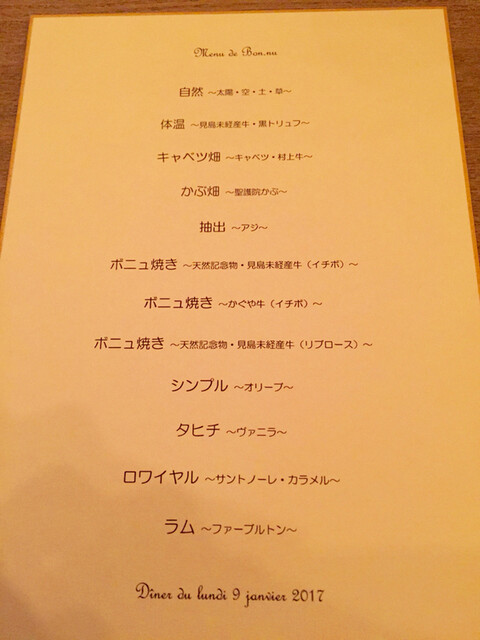 Menu de Bon.nu
自然 ～太陽・空・土・草～
体温 ～見島未経産牛・黒トリュフ～
キャベツ畑 ～キャベツ・村上牛～
かぶ畑 ～聖護院かぶ～
抽出 ～アジ～
ボニュ焼き ～天然記念物・見島未経産牛（イチボ）～
ボニュ焼き ～かぐや牛（イチボ）～
ボニュ焼き ～天然記念物・見島未経産牛（リブロース）～
シンプル ～オリーブ～
タヒチ ～ヴァニラ～
ロワイヤル ～サントノーレ・カラメル～
ラム ～ファーブルトン～
Dîner du lundi 9 janvier 2017